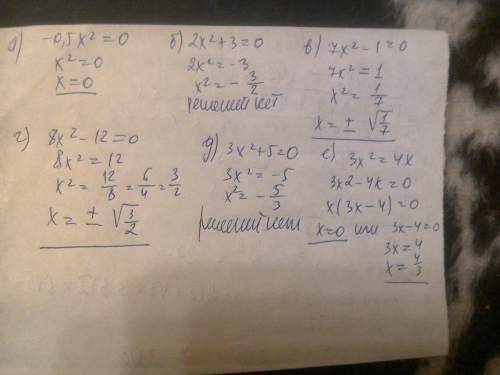 а) -0,5x²=0
x²=0
x=0
б) 2x²+3=0
2x²=-3
x²=-3/2
решений нет
в) 7x²-1=0
7x²=1
x²=1/7
x=±√1/7
г) 8x²-12=0
8x²=12
x²=12/8=6/4=3/2
x=±√3/2
д) 3x²+5=0
3x²=-5
x²=-5/3
решений нет
е) 3x²=4x
3x2-4x=0
x(3x-4)=0
x=0 или 3x-4=0
3x=4
x=4/3